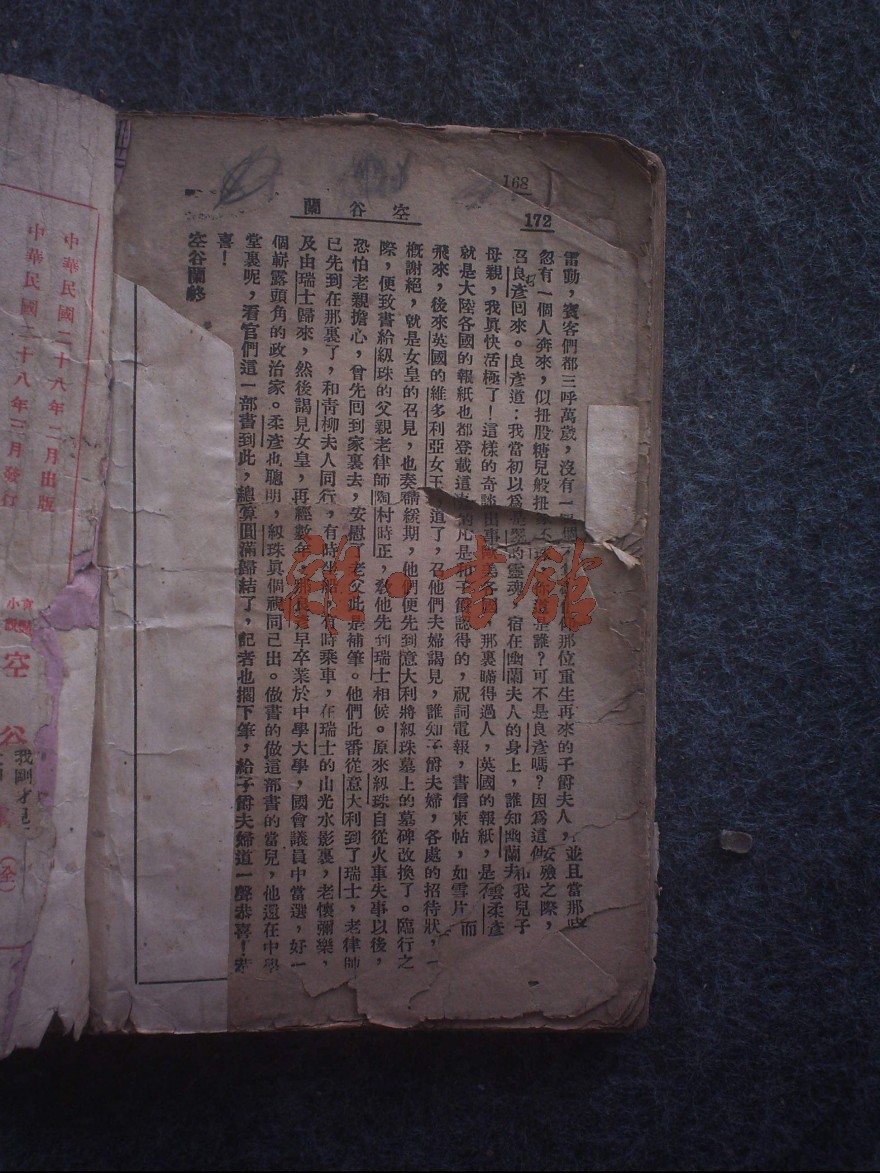 168
172
空谷蘭
雷動，賓客們都三呼萬歲，沒有一個 那位重生再來的子爵夫人， 並且當那
忽有一個人奔來，似扭股糖兒般扭 是誰？可不是良彥嗎？因爲這 安殮之際，
召良彥回來。良彥道：我當初以爲 的靈魂，宿在幽蘭夫人的身上，誰知幽蘭夫 我兒子
母親，我眞快活極了！這樣的奇談 各國 那裏瞞得過人，英國的報紙，是 柔彥
就是大陸各國的報紙也都登載這 凡是和子爵認得的，祝詞電報，書信柬帖，如雪片 而
飛來，後來英國的維多利亞女王 道了，召他們夫婦謁見，誰知子爵夫婦，各處的招待狀，一
槪謝絕，就是女皇的召見，也奏請緩期，他們便先到意大利將紉珠墓上的墓碑改換了。臨行之
際，便致書給紉珠的父親老律師陶村時正，敎他先到瑞士相候。原來紉珠自從火車失事以後，
恐怕老親擔心，曾先回到家裏去，安慰了老父此 補筆。他們此番從意大利到了瑞士，老律師
已先到在那裏了，和靑柳夫人同行，有時坐船，有時乘車，在瑞士的山光水影裏，老懷彌樂，
及由瑞士歸來，然後謁見女皇，再經數年，那良彥早卒業於中學大學，國會議員中當選，好一
個嶄露頭角的政治家。柔彥也聰明，紉珠眞個視同己出。做書的做這部書的當兒，他還在中學
堂裏呢，看官們這一部書到此，總算圓滿歸結了，記者也擱下筆，給子爵夫婦道一聲恭喜！恭
喜！
空谷蘭終
中華民國二十六年二月出版
中華民國二十八年三月發行
小說
空谷
（全）
我剛才見
雜·書館